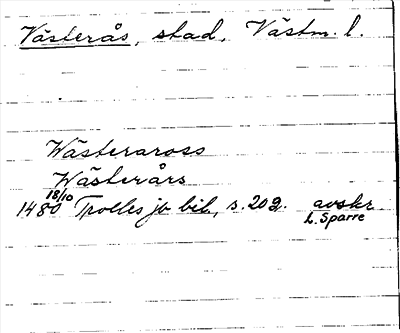 Västerås, stad, Västm. l.
Wästeraross
Wästerårs
18/10
1480 Trolles jb bil., s. 202. avskr
L. Sparre